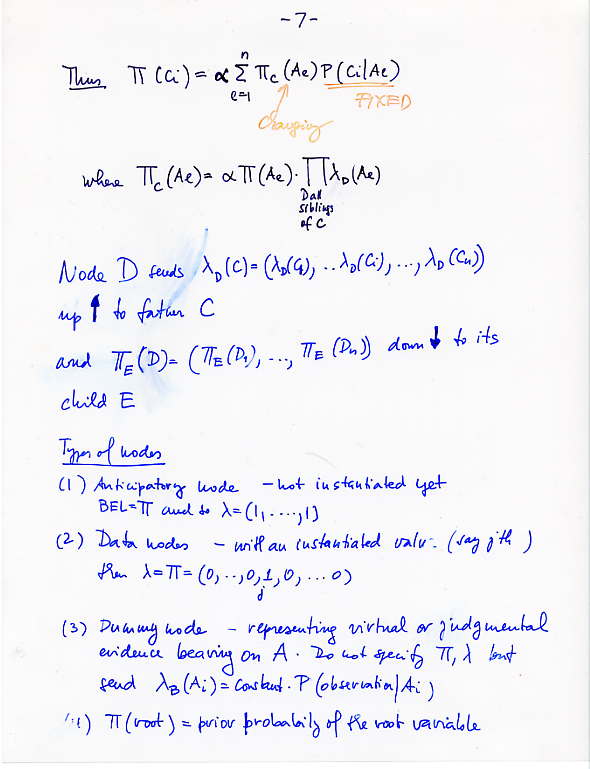 -7-
Thus Π(Ci) = α Σ Πc(Ae) P(Ci|Ae)
n
e=1
changing
FIXED
where Πc(Ae) = α Π(Ae) · ∏ λD(Ae)
D all
siblings
of C
Node D sends λD(C) = (λD(C1), .. λD(Ci), ..., λD(Cn))
up ↑ to father C
and ΠE(D) = (ΠE(D1), ..., ΠE(Dn)) down ↓ to its
child E
Types of nodes
(1) Anticipatory node – not instantiated yet
BEL=Π and so λ=(1, ...., 1)
(2) Data nodes – with an instantiated value. (say jth)
then λ=Π=(0, .., 0, 1, 0, ... 0)
j
(3) Dummy node – representing virtual or judgmental
evidence bearing on A. Do not specify Π, λ but
send λB(Ai) = constant · P(observation|Ai)
(4) Π(root) = prior probability of the root variable